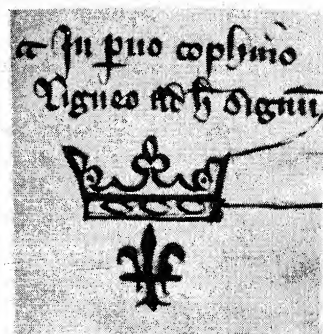 In puo cophino
ligneo ad h signu